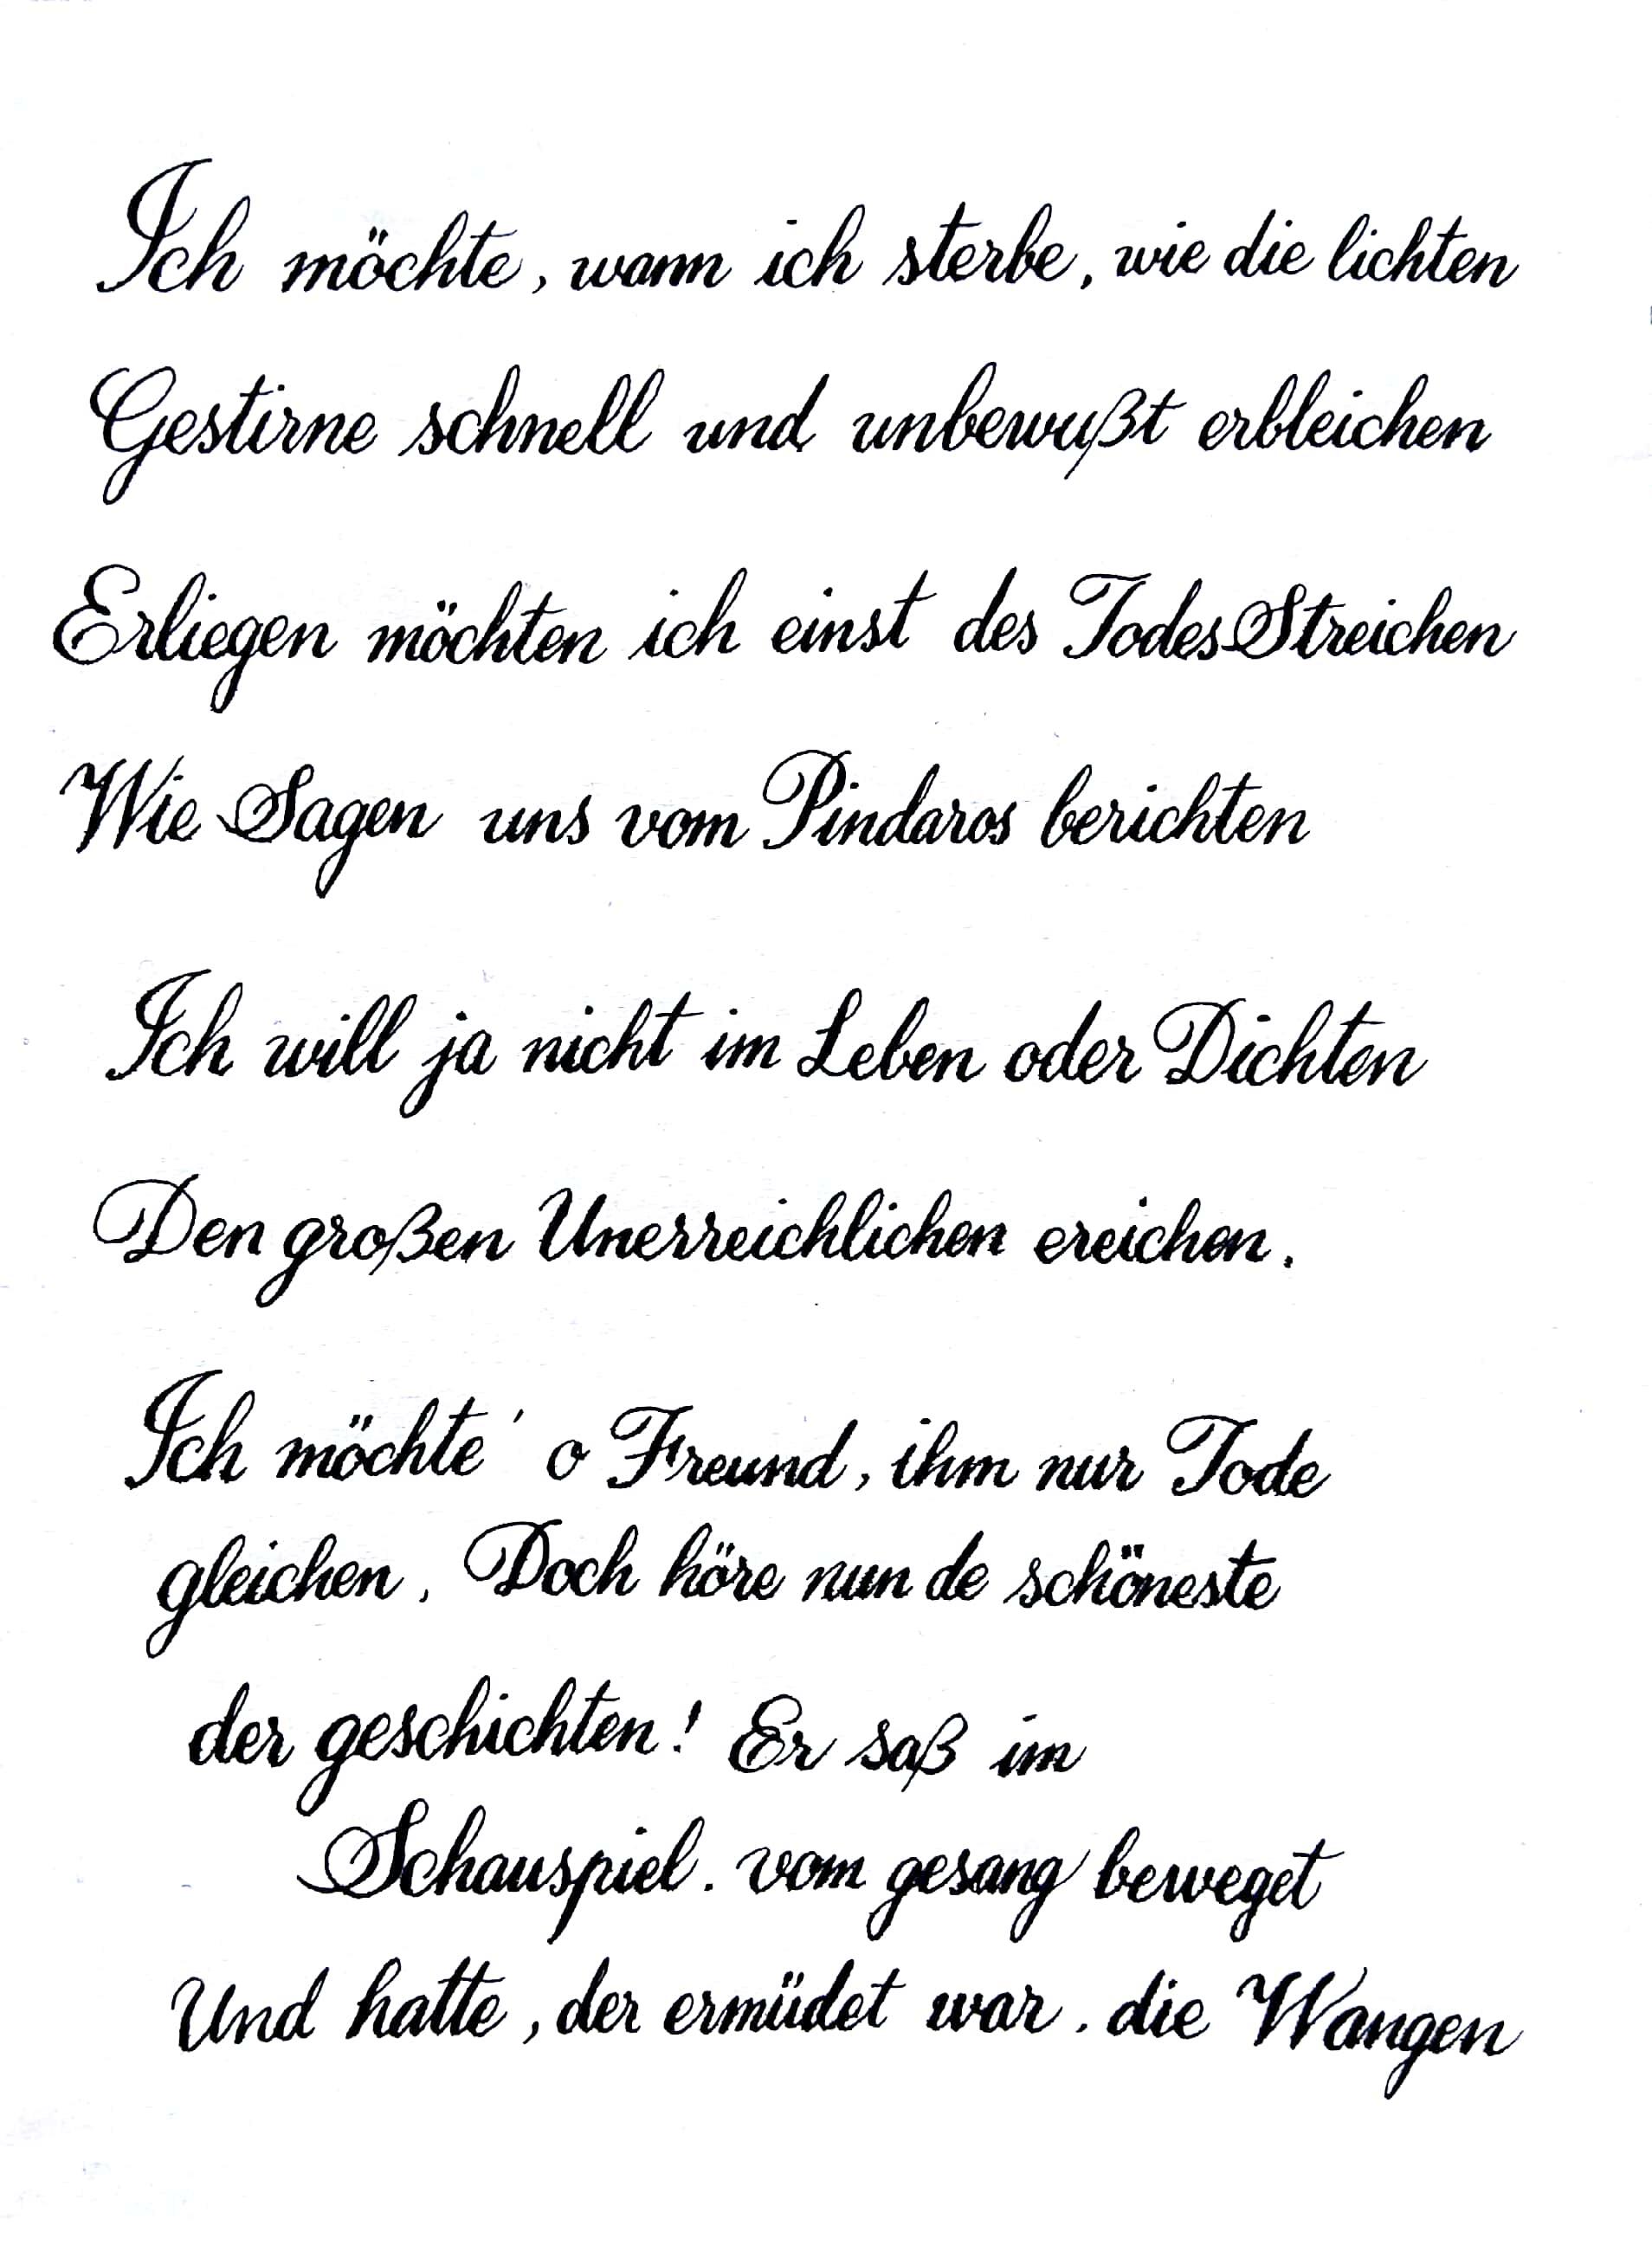 Ich möchte, wann ich sterbe, wie die lichten
Gestirne schnell und unbewußt erbleichen
Erliegen möchten ich einst des Todes Streichen
Wie Sagen uns vom Pindaros berichten
Ich will ja nicht im Leben oder Dichten
Den großen Unerreichlichen ereichen.
Ich möchte' o Freund, ihm nur Tode
gleichen. Doch höre nun de schöneste
der geschichten! Er saß im
Schauspiel. vom gesang beweget
Und hatte, der ermüdet war. die Wangen